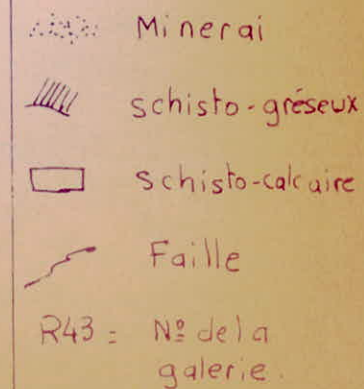 Minerai
schisto-gréseux
schisto-calcaire
Faille
R43 = Nº de la
galerie.